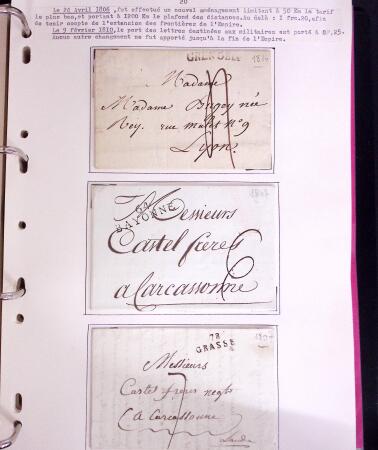 20
Le 24 Avril 1806, fut effectué un nouvel aménagement limitant à 50 Km le tarif
le plus bas, et portant à 1200 Km le plafond des distances. Au delà : 1 frc.20, afin
de tenir compte de l'extension des frontières de l'Empire.
Le 9 février 1810, le port des lettres destinées aux militaires est porté à 0F,25.
Aucun autre changement ne fut apporté jusqu'à la fin de l'Empire.
GRENOBLE
Madame
Madame née
Rey. rue mulet n° 9
Lyon.
1807
64
BAYONNE
Messieurs
Castel frères
6
a Carcassonne
78
GRASSE
1807
Messieurs
7
Castel frères negts
a Carcassonne